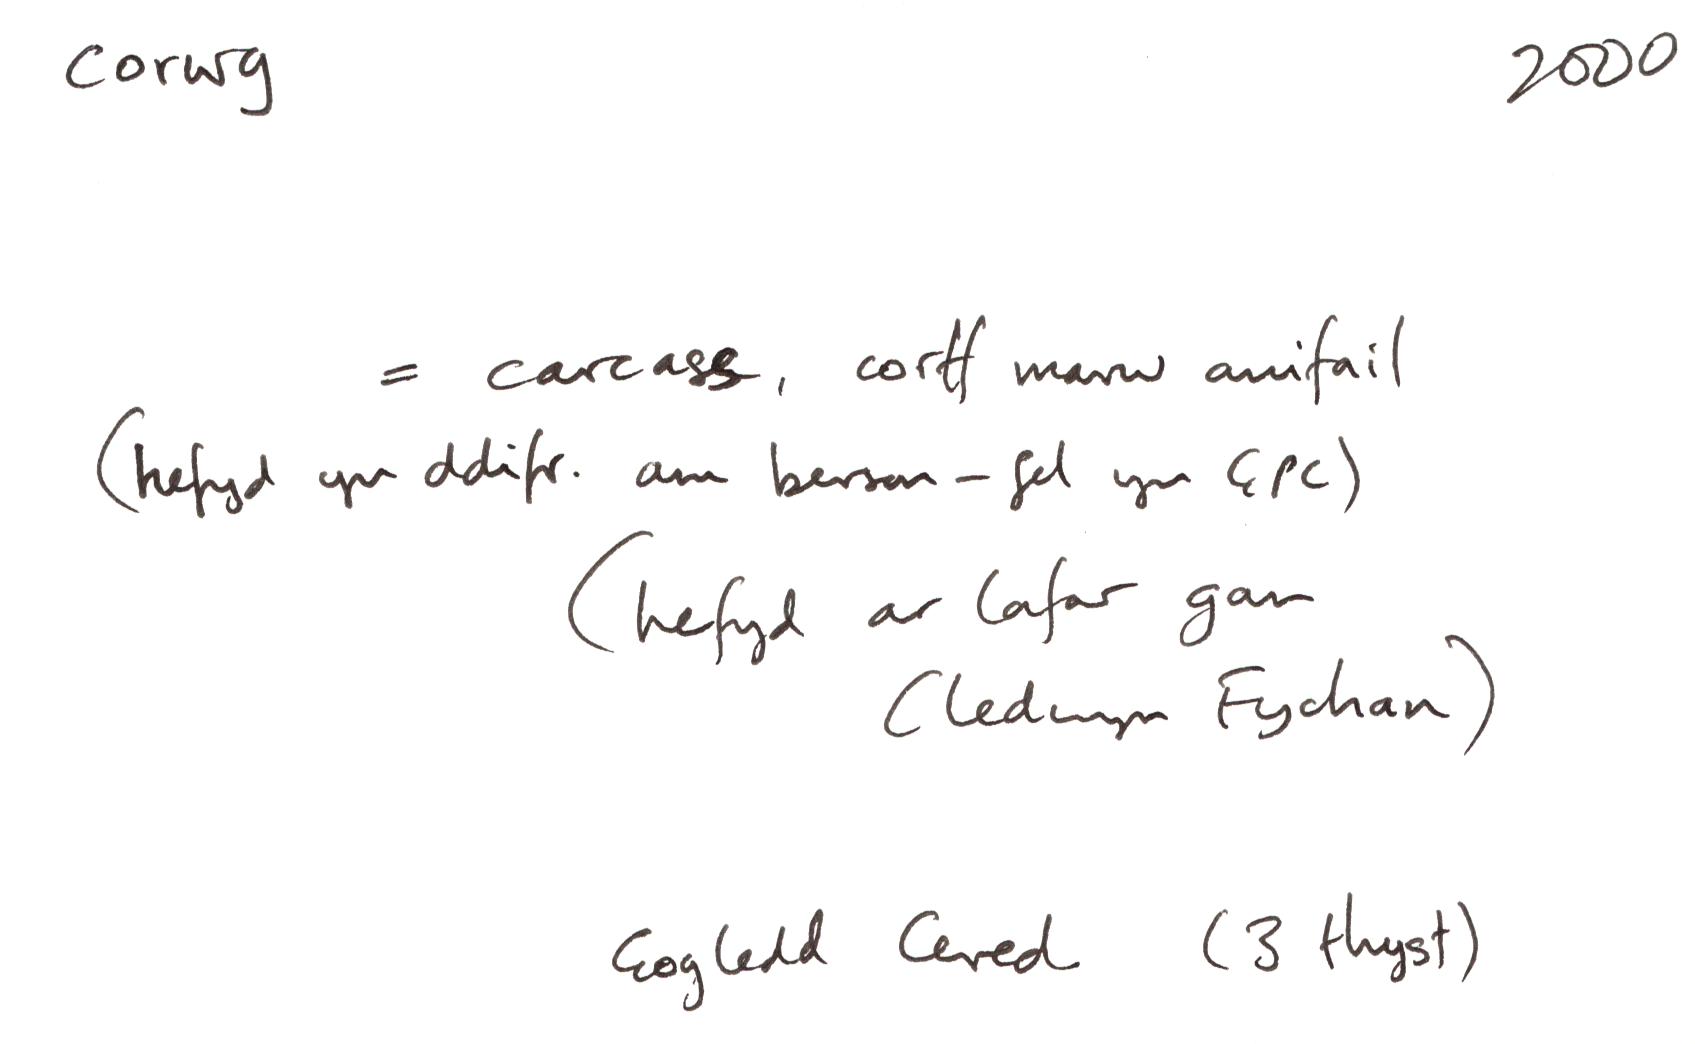 corwg 2000
= carcass, corff marw anifail
(hefyd yn ddifr. am berson – fel yn GPC)
(hefyd ar lafar gan
Cledwyn Fychan)
Gogledd Cered (3 thyst)